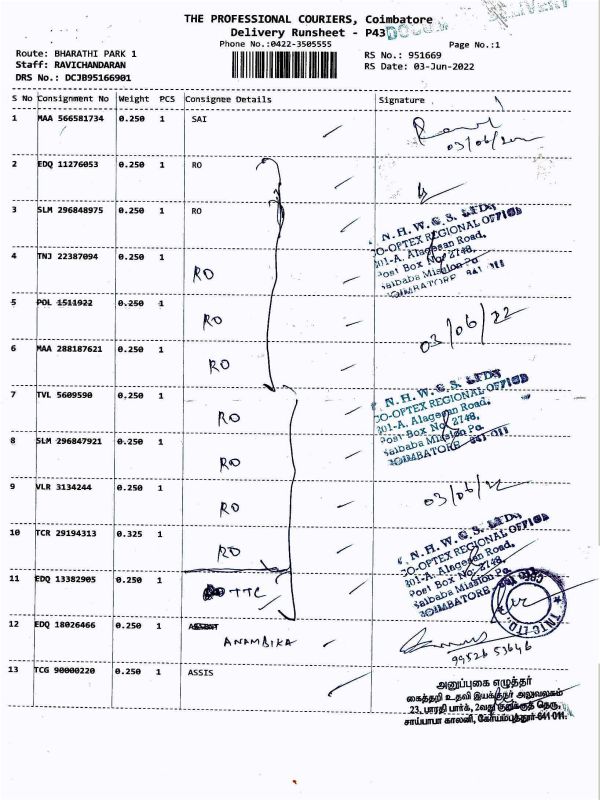 THE PROFESSIONAL COURIERS, Coimbatore
DELIVERY
Delivery Runsheet - P43
Phone No.:0422-3505555
Page No.:1
Route: BHARATHI PARK 1
RS No.: 951669
Staff: RAVICHANDARAN
RS Date: 03-Jun-2022
DRS No.: DCJB95166901
S No Consignment No Weight PCS Consignee Details Signature
1 MAA 566581734 0.250 1 SAI
03/06/22
2 EDQ 11276053 0.250 1 RO
3 SLM 296848975 0.250 1 RO
N.H.W.C.S. LTD.
CO-OPTEX REGIONAL OFFICE
201-A, Alagesan Road,
Post Box No. 2748,
Saibaba Mission Po
COIMBATORE 641 011
4 TNJ 22387094 0.250 1 RO
5 POL 1511922 0.250 1 RO
03/06/22
6 MAA 288187621 0.250 1 RO
7 TVL 5609590 0.250 1 RO
N.H.W.C.S. LTD.
CO-OPTEX REGIONAL OFFICE
201-A, Alagesan Road,
Post Box No. 2748,
Saibaba Mission Po.
COIMBATORE 641-011
8 SLM 296847921 0.250 1 RO
9 VLR 3134244 0.250 1 RO
03/06/22
10 TCR 29194313 0.325 1 RO
N.H.W.C.S. LTD.
CO-OPTEX REGIONAL OFFICE
201-A, Alagesan Road,
Post Box No. 2748,
Saibaba Mission Po.
COIMBATORE
11 EDQ 13382905 0.250 1 TTC
12 EDQ 18026466 0.250 1 ANAMBIKA
99526 53646
13 TCG 90000220 0.250 1 ASSIS
அனுப்புகை எழுத்தர்
கைத்தறி உதவி இயக்குநர் அலுவலகம்
23, பாரதி பார்க், 2வது குறுக்குத் தெரு,
சாய்பாபா காலனி, கோயம்புத்தூர்-641 011.